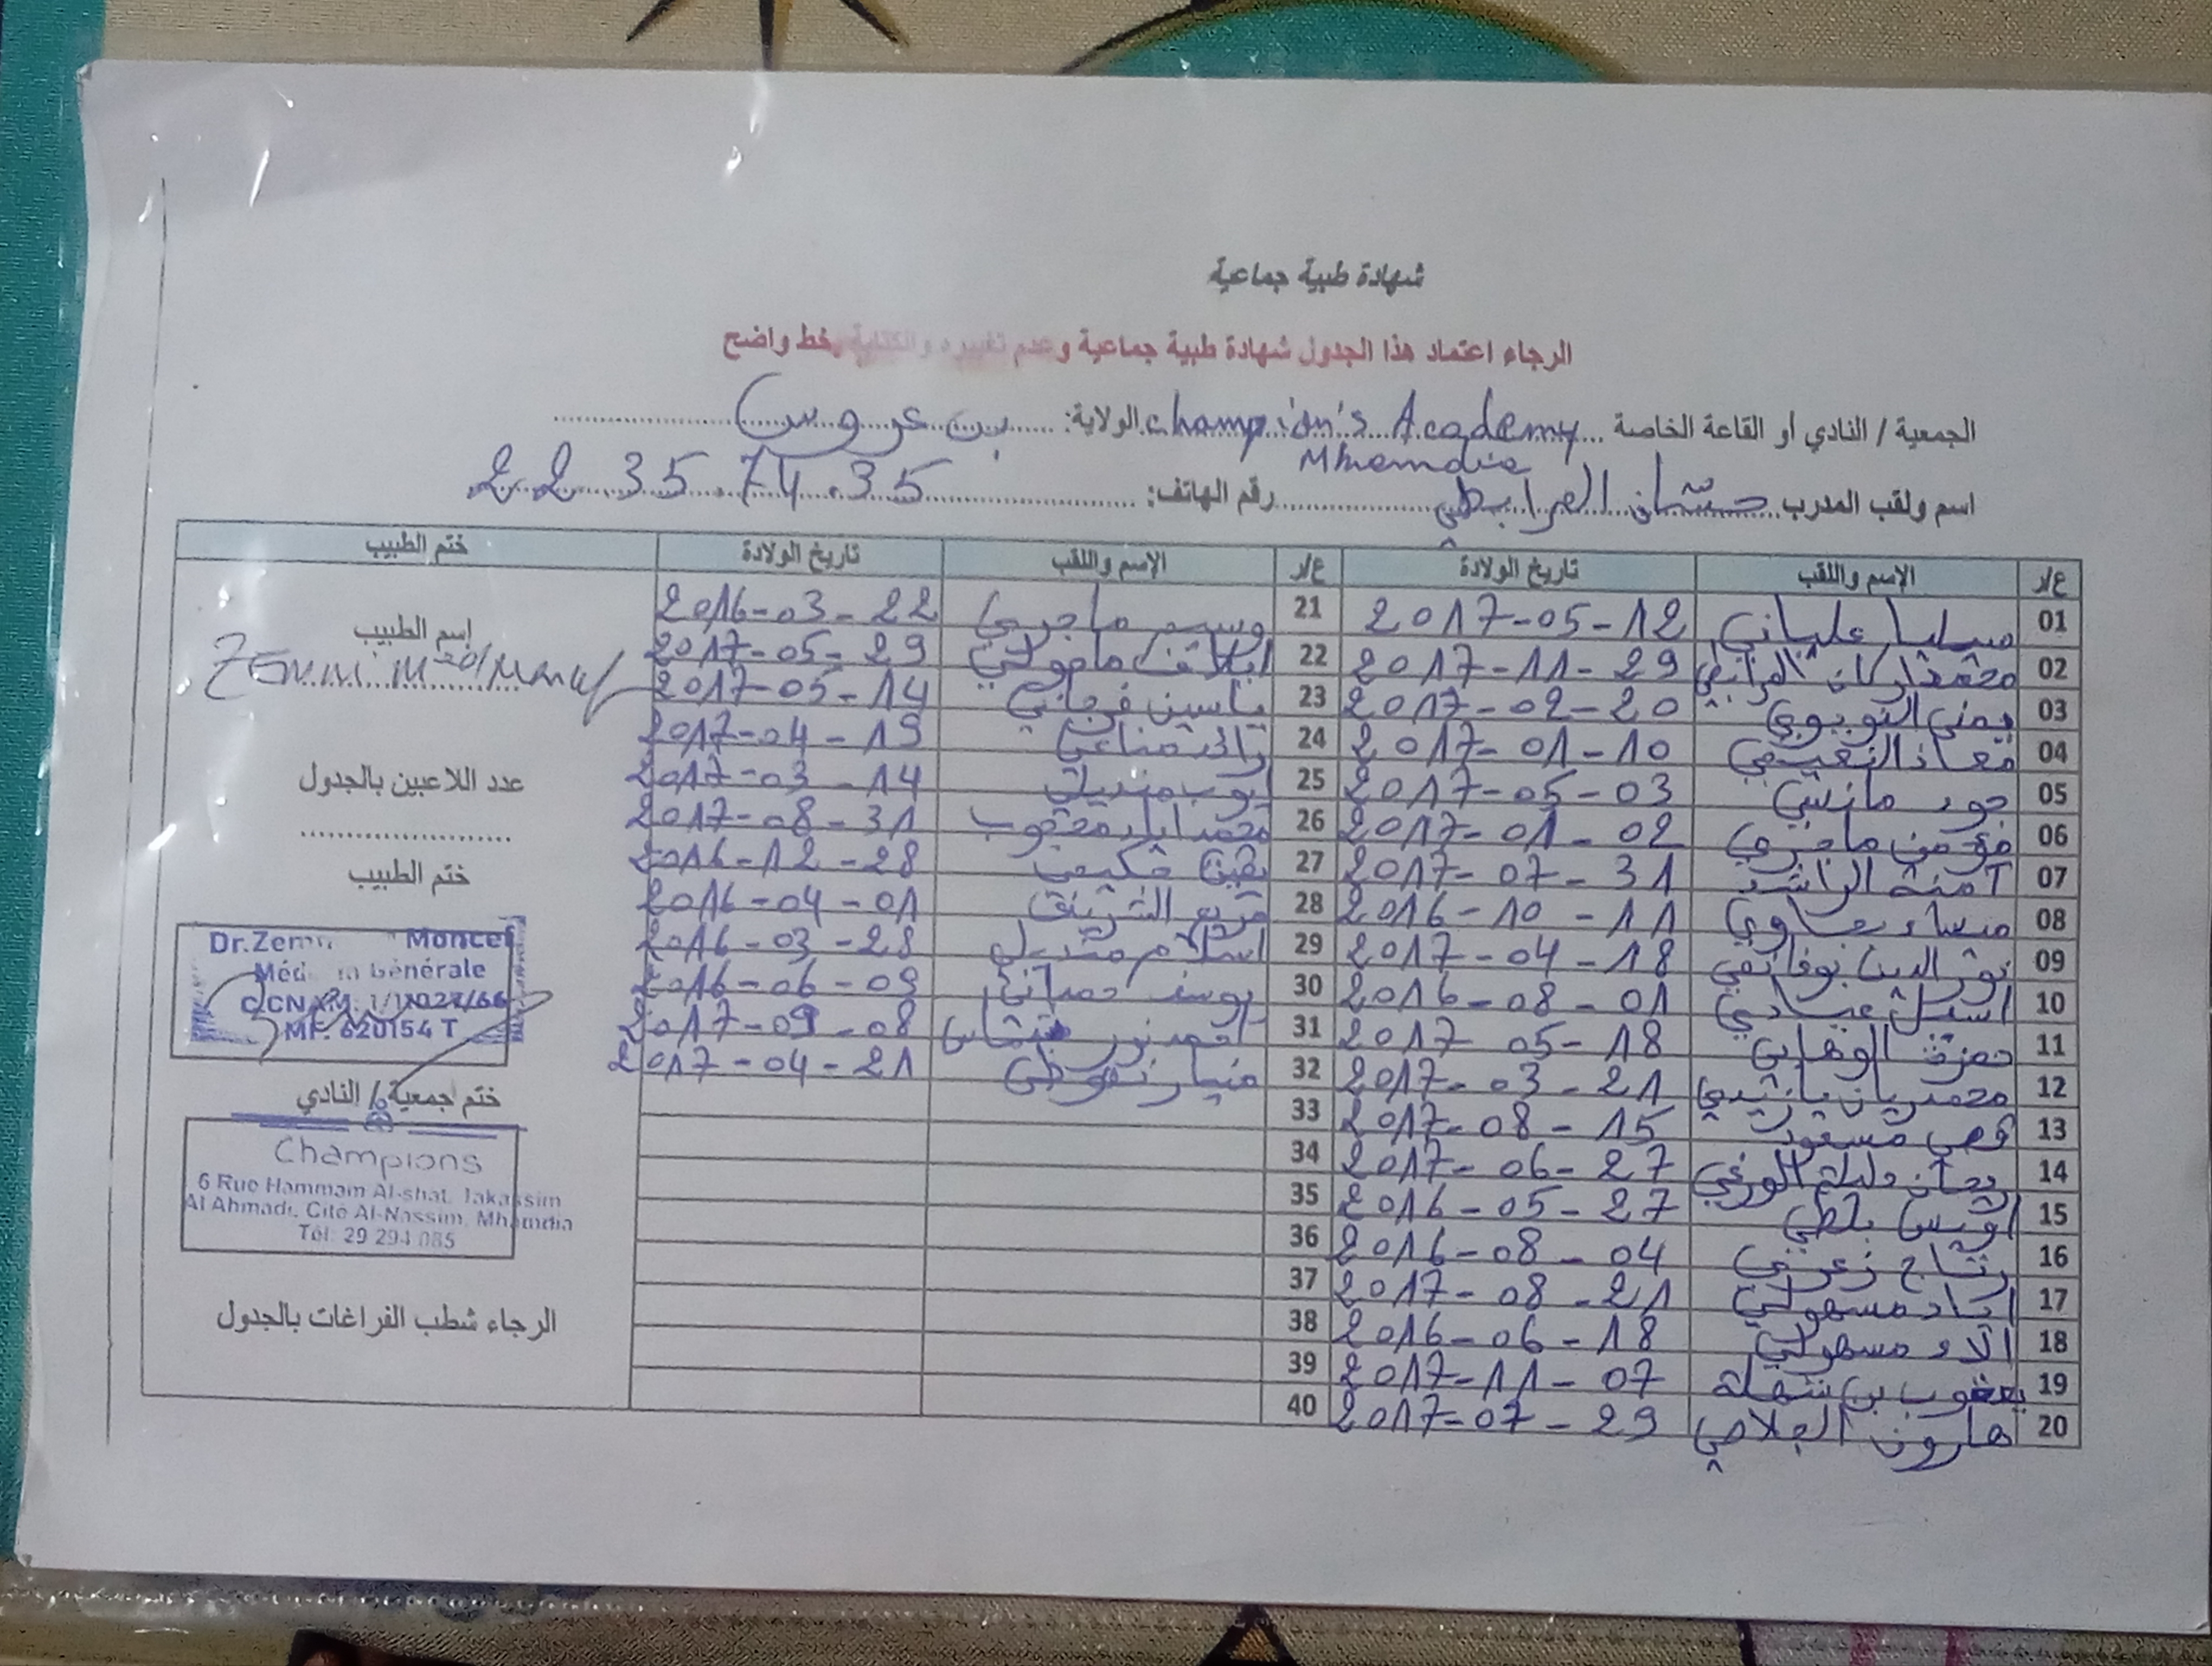 شهادة طبية جماعية
الرجاء اعتماد هذا الجدول شهادة طبية جماعية وعدم تغييره والكتابة بخط واضح
الجمعية / النادي أو القاعة الخاصة ... champion's Academy الولاية: ... بن عروس
Mhamdia
اسم ولقب المدرب ... حسان المرابطي ... رقم الهاتف: 22 35 74 35
ع/ر الإسم واللقب تاريخ الولادة ع/ر الإسم واللقب تاريخ الولادة ختم الطبيب
01 علياني 2017-05-12 21 وسيم ماجري 2016-03-22
إسم الطبيب
02 محمد اركان المرابطي 2017-11-29 22 2017-05-29
03 يمنى 2017-02-20 23 ياسين فرجاني 2017-05-14
04 معاذ النعيمي 2017-01-10 24 مناعي 2017-04-19
05 جود مانسي 2017-05-03 25 ايوب منديل 2017-03-14
عدد اللاعبين بالجدول
06 مؤمن ماجري 2017-01-02 26 محمد اياد محجوب 2017-08-31
07 آمنة الراشد 2017-07-31 27 يقين حكيمي 2016-12-28
ختم الطبيب
08 ميساء 2016-10-11 28 مريم 2016-04-01
09 نور الدين بوغانمي 2017-04-18 29 اسلام منديل 2016-03-28
10 اسيل عبادي 2016-08-01 30 يوسف حمداني 2016-06-09
11 حمزة الوهابي 2017-05-18 31 احمد نور 2017-09-08
12 محمد ريان 2017-03-21 32 2017-04-21
13 قصي مسعود 2017-08-15 33
14 الورغي 2017-06-27 34
15 اويس بلطي 2016-05-27 35
16 رتاج زعرني 2016-08-04 36
17 اياد مسهولي 2017-08-21 37
18 آلاء مسهولي 2016-06-18 38
19 يعقوب بن شهلة 2017-11-07 39
20 هارون الجلاصي 2017-07-29 40
Dr.Zem Moncef
Générale
MF. 620154 T
ختم جمعية / النادي
Champions
6 Rue Hammam Al-shat, Jakassim
Al Ahmadi, Cité Al-Nassim, Mhamdia
Tél: 29 294 085
الرجاء شطب الفراغات بالجدول